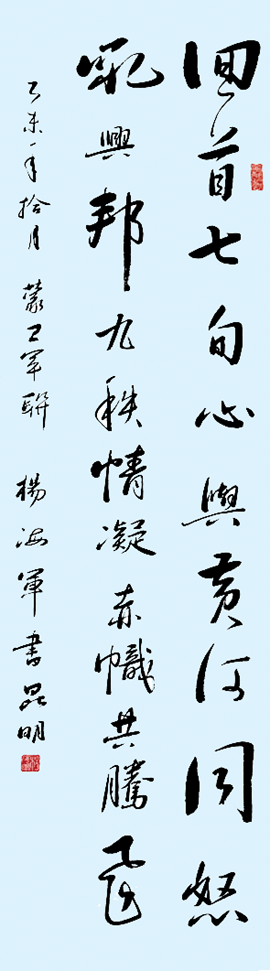 回首七旬心與黄河同怒
吼興邦九秩情凝赤幟共騰飛
乙未年拾月 卫軍聯 楊海軍書昆明